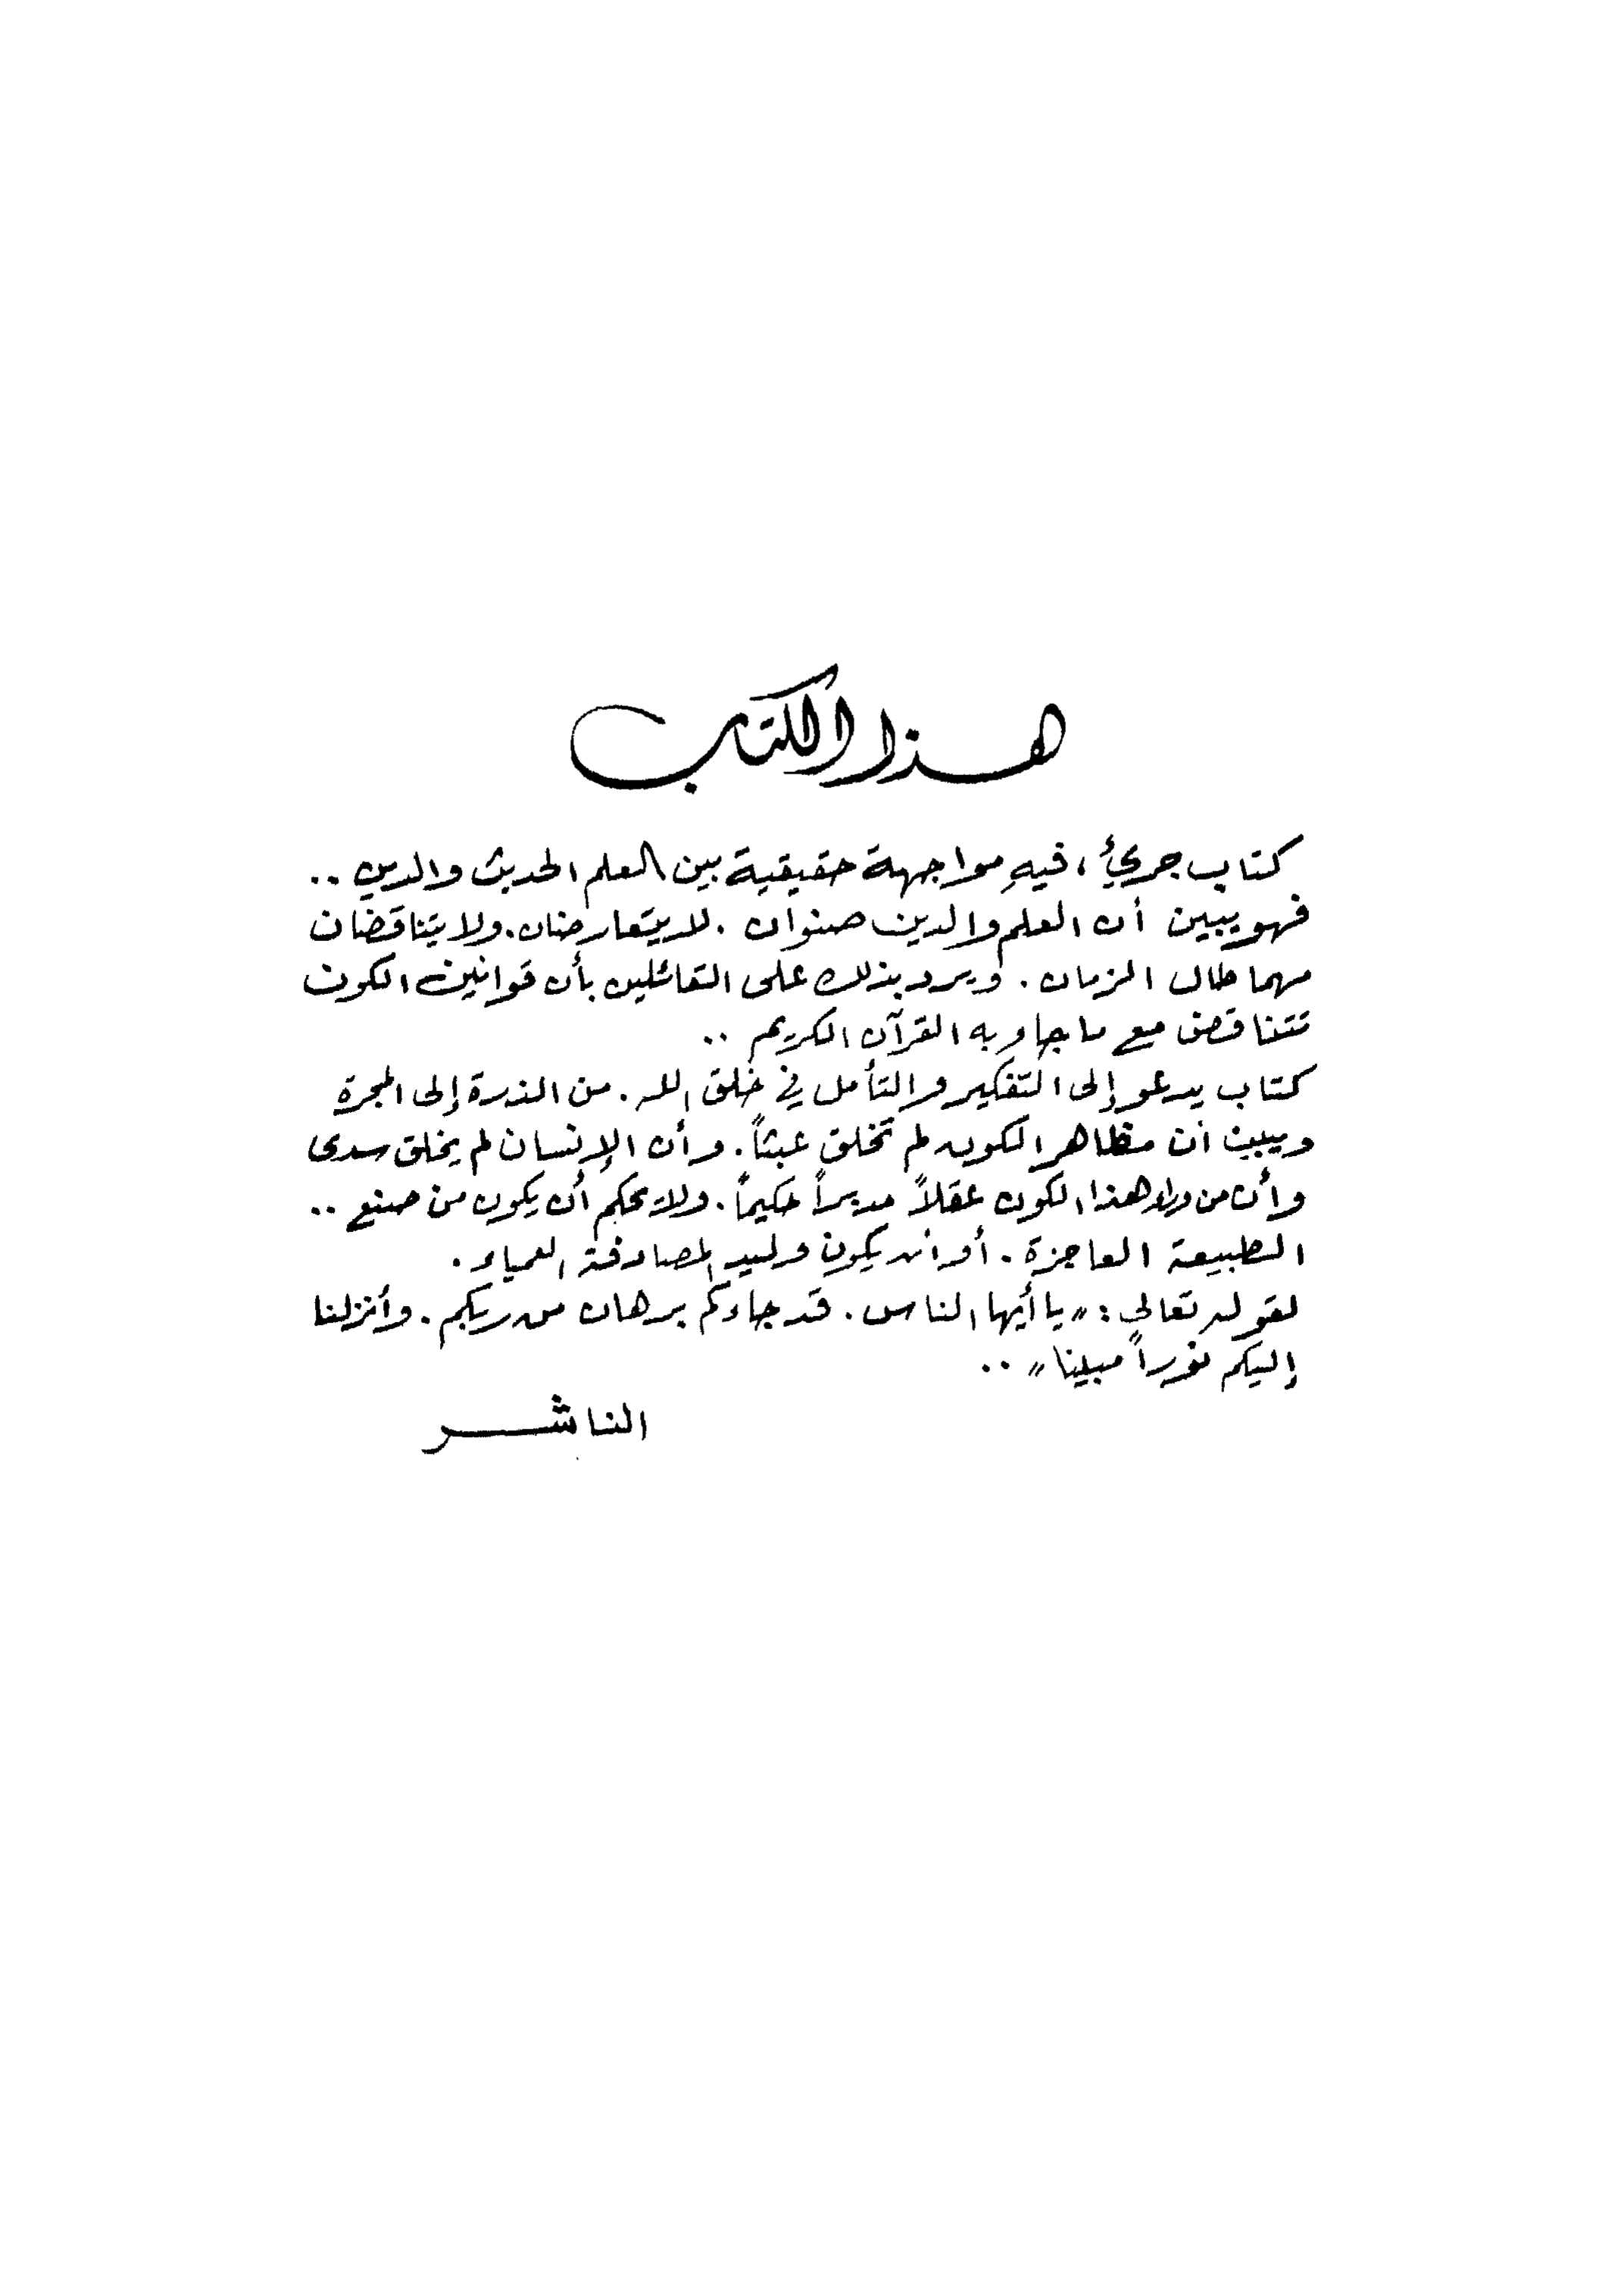 هذا الكتاب
كتاب جريئ ، فيهِ مواجهة حقيقية بين العلم الحديث والدين ..
فهو يبين أن العلم والدين صنوان . لا يتعارضان . ولا يتناقضان
مهما طال الزمان . ويرد بذلك على القائلين بأن قوانين الكون
تتناقض مع ما جاء به القرآن الكريم ..
كتاب يدعو إلى التفكير والتأمل في خلق الله . من الذرة إلى المجرة
ويبين أن مظاهر الكون لم تخلق عبثاً . وأن الإنسان لم يخلق سدى
وأن من وراء هذا الكون عقلاً مدبراً حكيماً . ولا يحكم أن يكون من صنع ..
الطبيعة العاجزة . أو أن يكون وليد المصادفة العمياء .
لقوله تعالى : « يا أيها الناس . قد جاءكم برهان من ربكم . وأنزلنا
إليكم نوراً مبينا » ..
الناشر